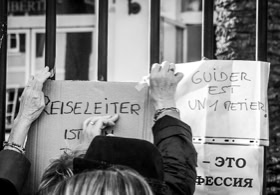 IBERT
REISELEITER
IST
GUIDER
EST
UN METIER
- ЭТО
ФЕССИЯ